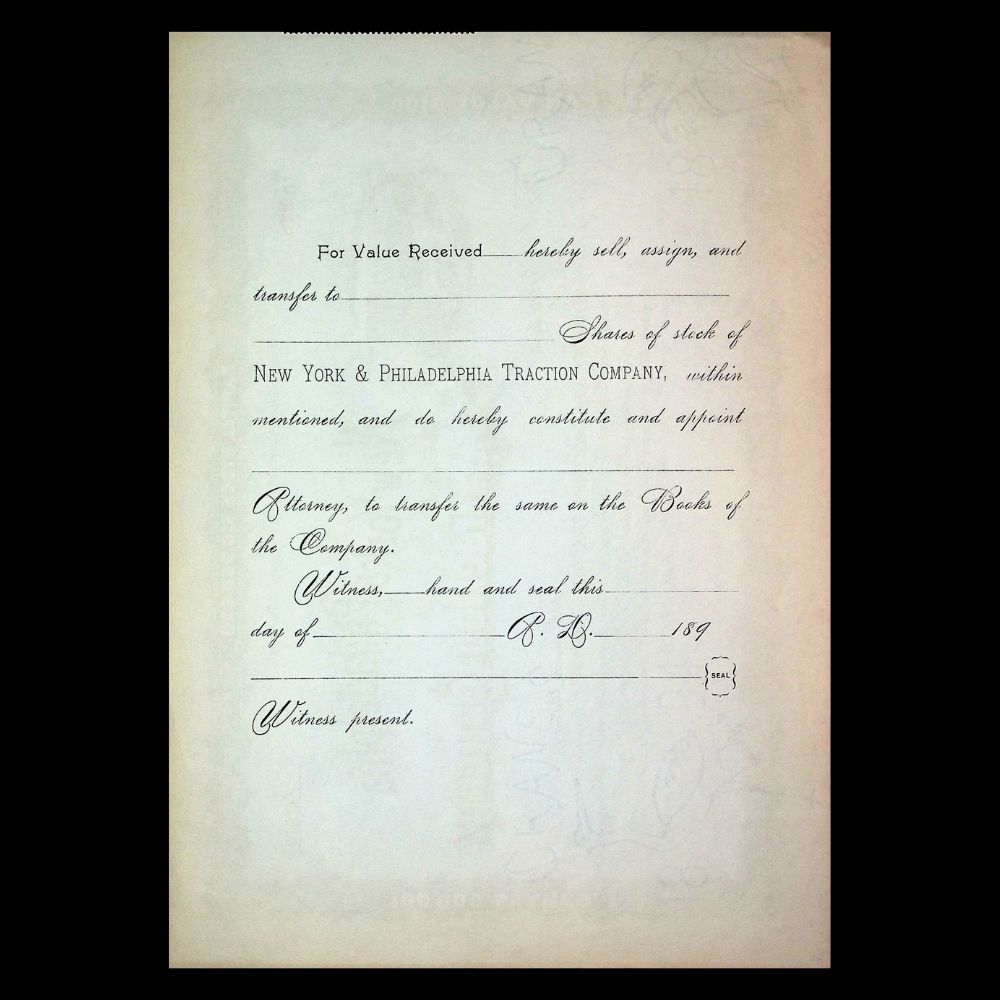 For Value Received hereby sell, assign, and
transfer to
Shares of stock of
NEW YORK & PHILADELPHIA TRACTION COMPANY, within
mentioned, and do hereby constitute and appoint
Attorney, to transfer the same on the Books of
the Company.
Witness, hand and seal this
day of A. D. 189
SEAL
Witness present.